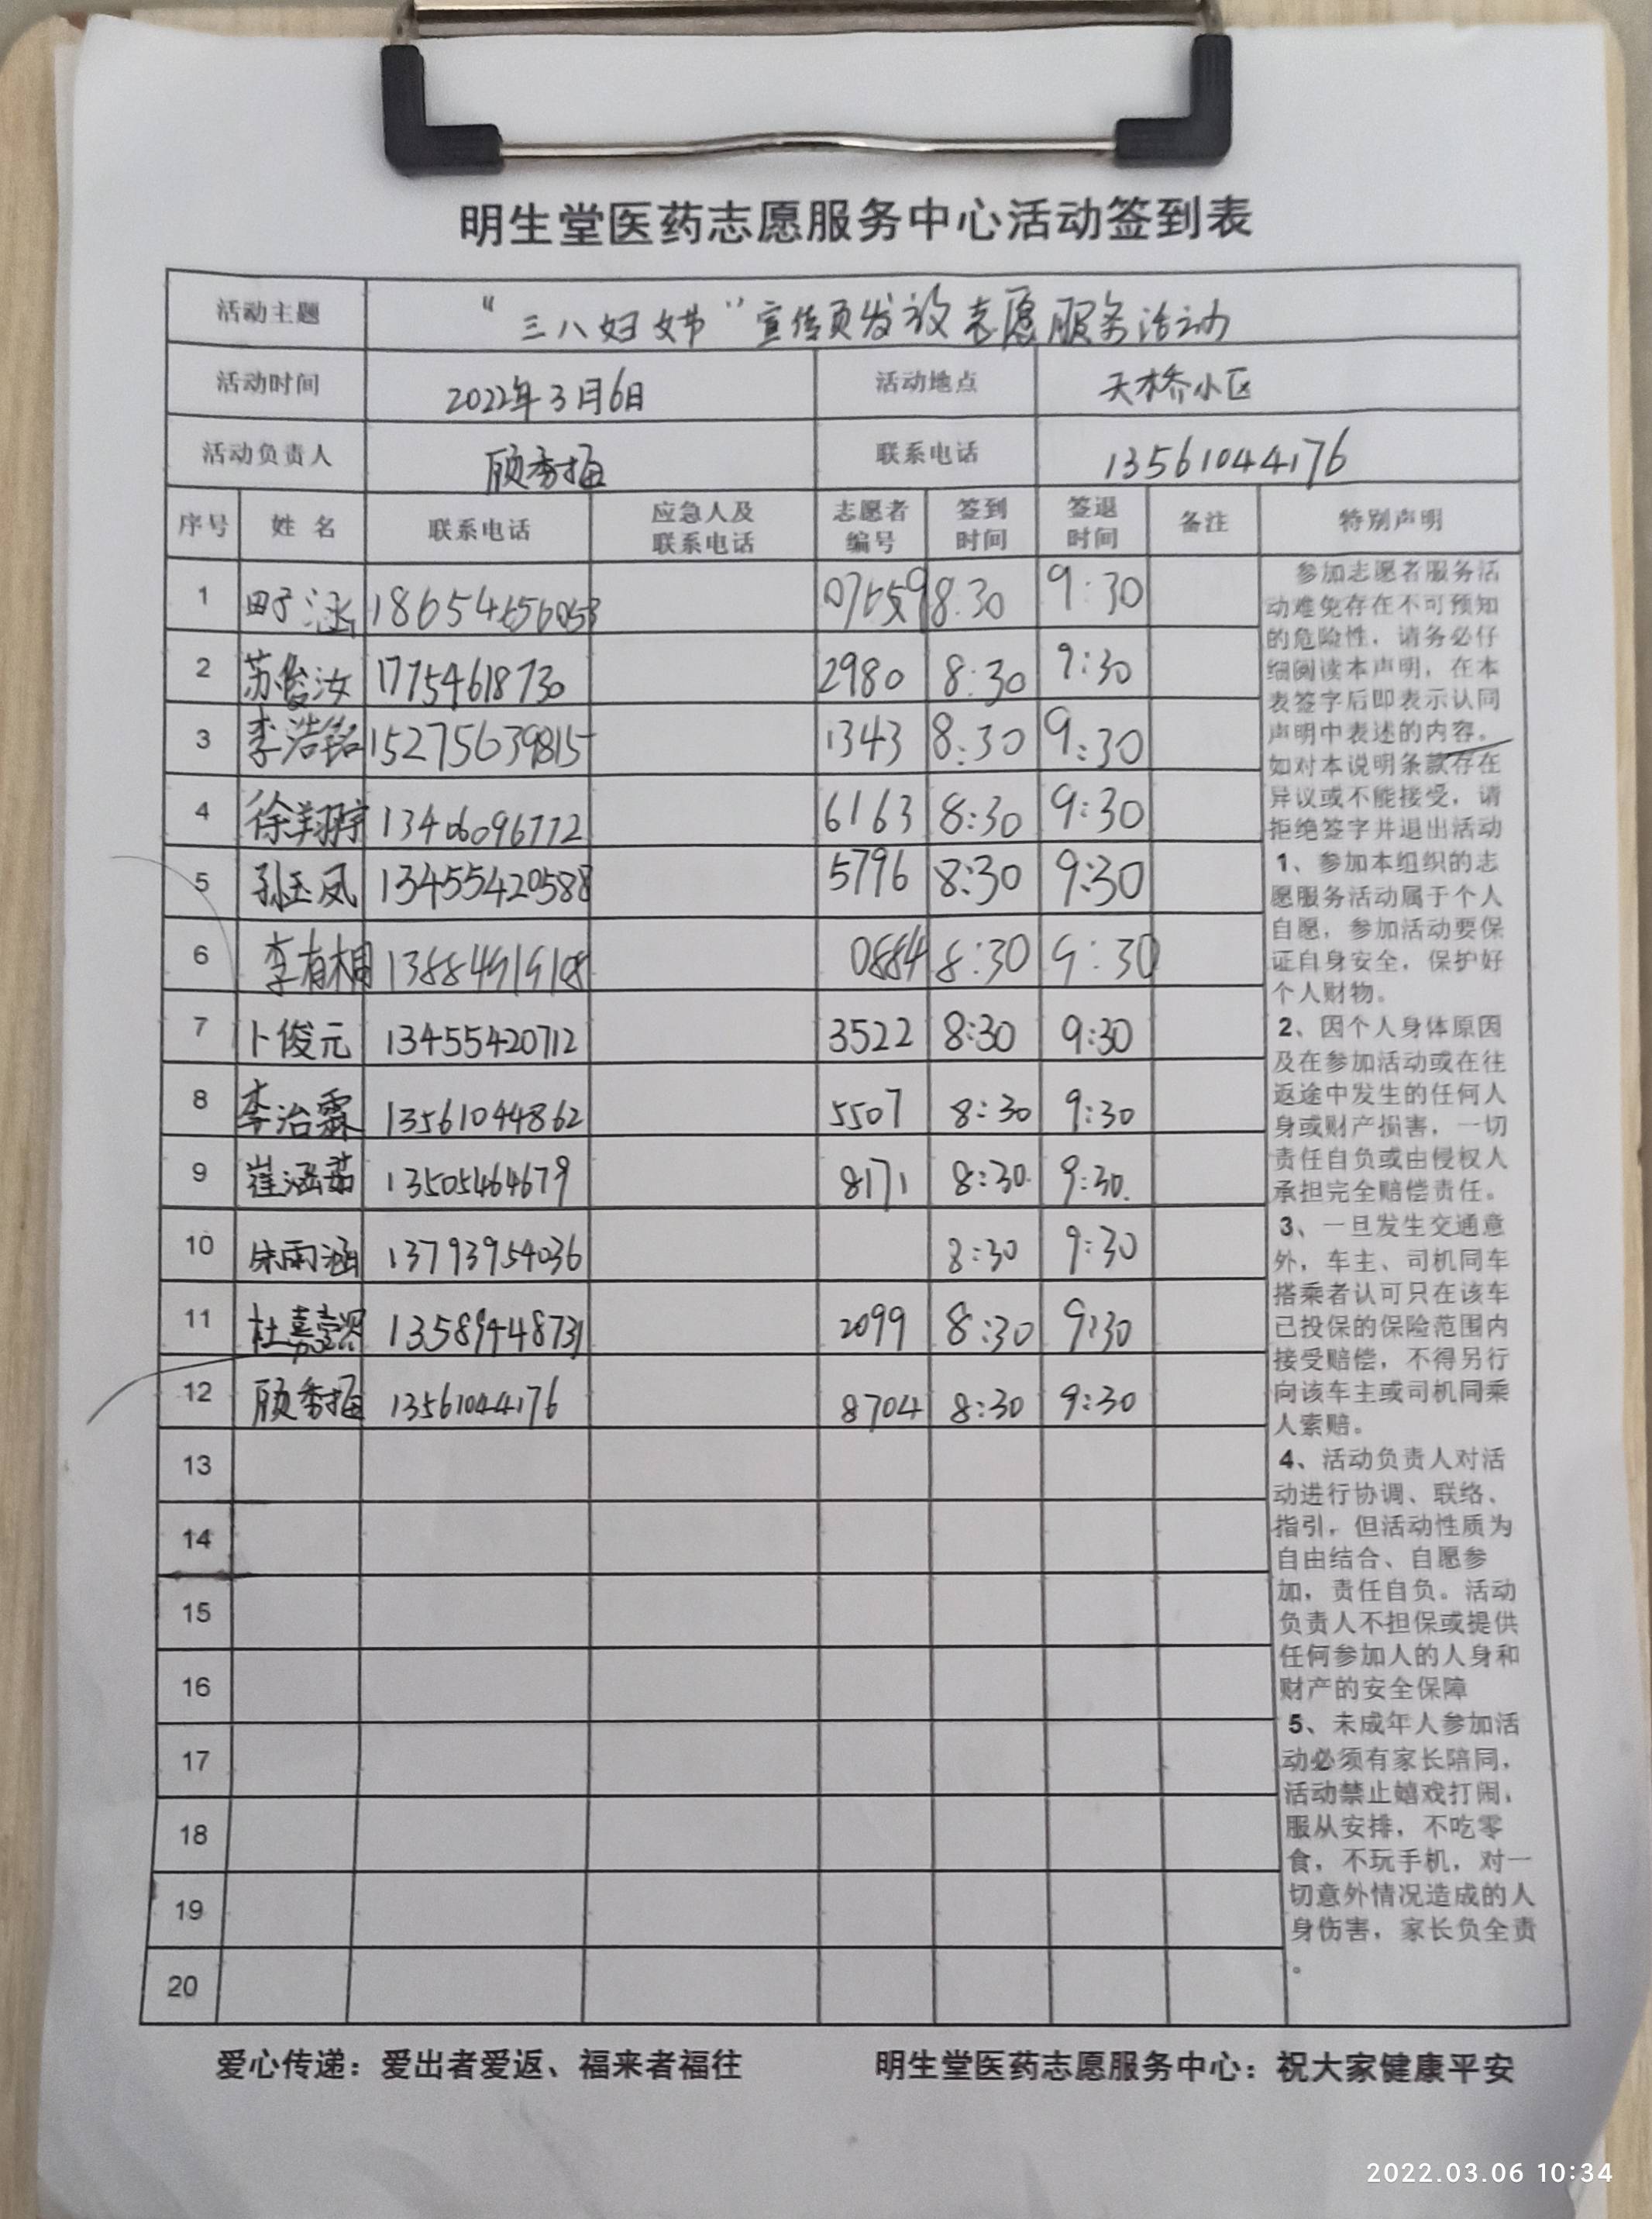 明生堂医药志愿服务中心活动签到表
活动主题 "三八妇女节"宣传页发放志愿服务活动
活动时间 2022年3月6日 活动地点 天桥小区
活动负责人 顾秀梅 联系电话 13561044176
序号 姓名 联系电话 应急人及联系电话 志愿者编号 签到时间 签退时间 备注 特别声明
1 田子涵 8:30 9:30
2 苏俊汝 17754618730 2980 8:30 9:30
3 李浩铭 15275639815 1343 8:30 9:30
4 徐翔宇 13406096772 6163 8:30 9:30
5 孙玉凤 13455420588 5796 8:30 9:30
6 李有相 13884919108 0884 8:30 9:30
7 卜俊元 13455420712 3522 8:30 9:30
8 李治霖 13561044862 5507 8:30 9:30
9 崔涵茹 13505464679 8171 8:30 9:30
10 朱雨涵 13793954036 8:30 9:30
11 杜嘉 13589448731 2099 8:30 9:30
12 顾秀梅 13561044176 8704 8:30 9:30
13
14
15
16
17
18
19
20
参加志愿者服务活
动难免存在不可预知
的危险性，请务必仔
细阅读本声明，在本
表签字后即表示认同
声明中表述的内容。
如对本说明条款存在
异议或不能接受，请
拒绝签字并退出活动
1、参加本组织的志
愿服务活动属于个人
自愿，参加活动要保
证自身安全，保护好
个人财物。
2、因个人身体原因
及在参加活动或在往
返途中发生的任何人
身或财产损害，一切
责任自负或由侵权人
承担完全赔偿责任。
3、一旦发生交通意
外，车主、司机同车
搭乘者认可只在该车
已投保的保险范围内
接受赔偿，不得另行
向该车主或司机同乘
人索赔。
4、活动负责人对活
动进行协调、联络、
指引，但活动性质为
自由结合、自愿参
加，责任自负。活动
负责人不担保或提供
任何参加人的人身和
财产的安全保障
5、未成年人参加活
动必须有家长陪同，
活动禁止嬉戏打闹，
服从安排，不吃零
食，不玩手机，对一
切意外情况造成的人
身伤害，家长负全责
。
爱心传递：爱出者爱返、福来者福往 明生堂医药志愿服务中心：祝大家健康平安
2022.03.06 10:34